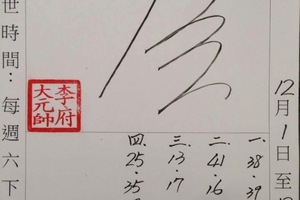 12月1日至
一. 38. 39
二. 41. 16
三. 13. 17
四. 25. 35
李府
大元帥
世時間：每週六下